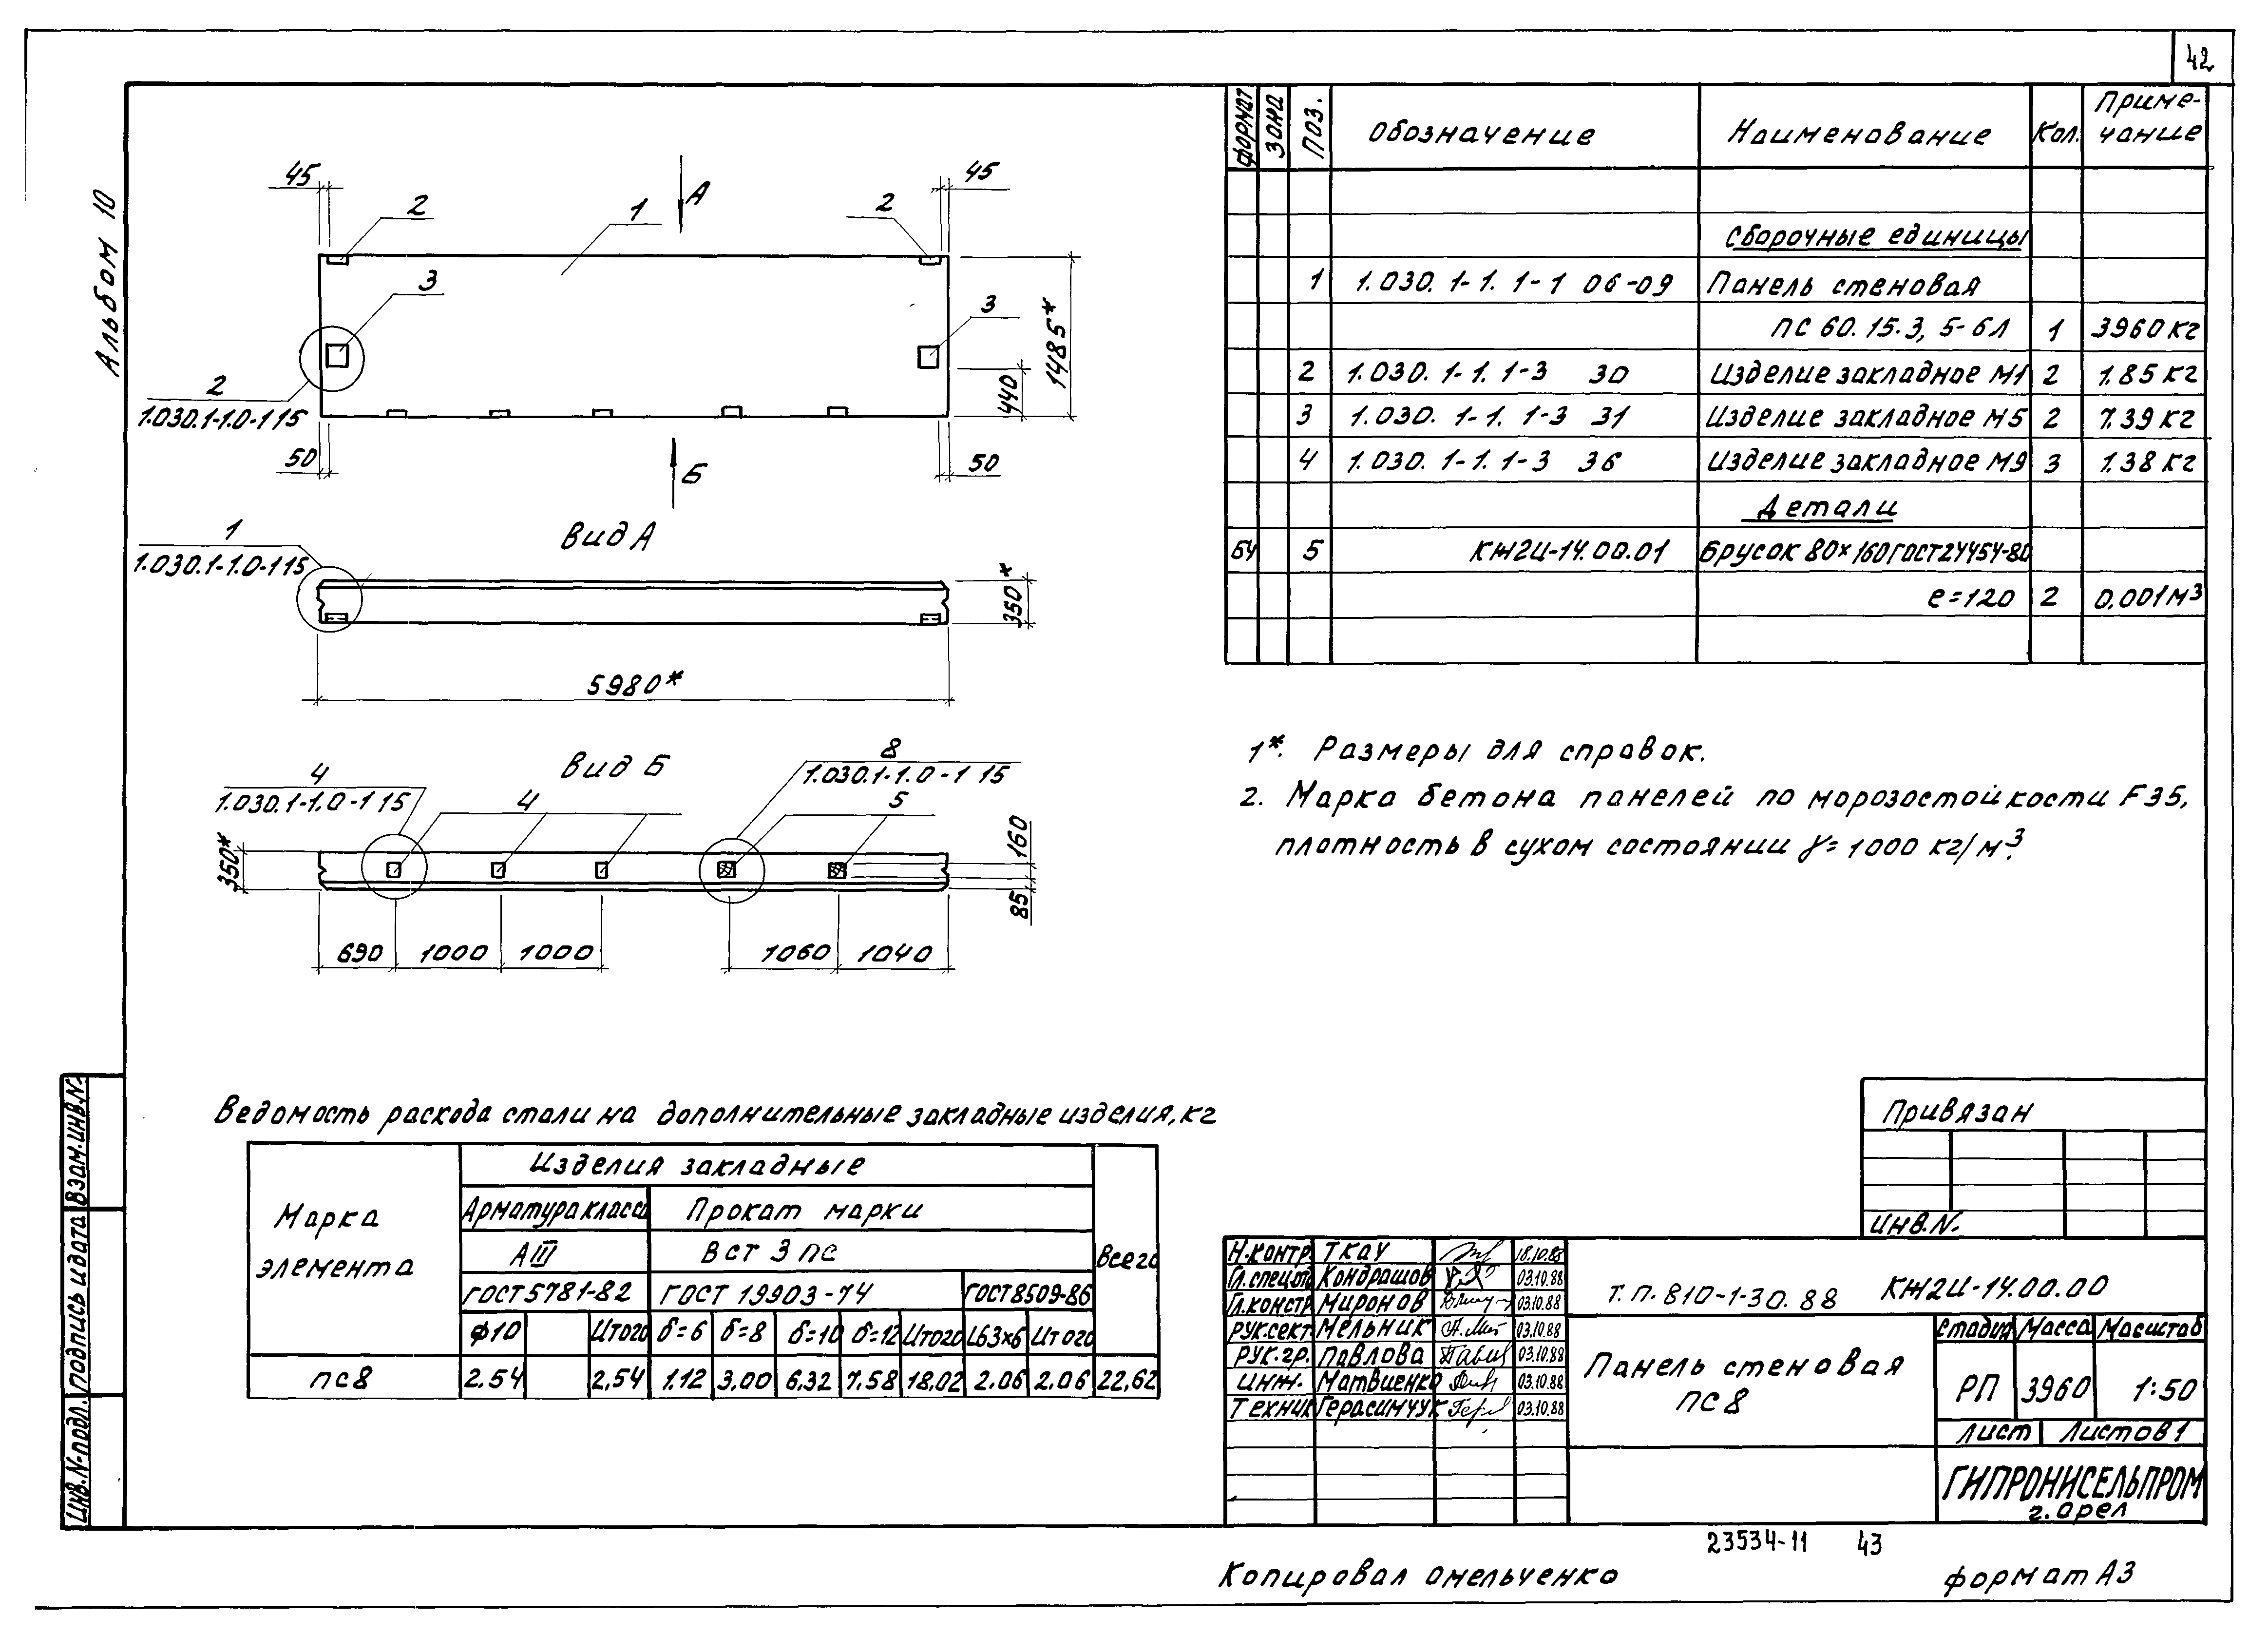 42
Альбом 10
45
2
1
А
2
45
3
3
1485*
440
2
1.030.1-1.0-1 15
50
Б
50
Вид А
1
1.030.1-1.0-1 15
350*
5980*
Вид Б
4
1.030.1-1.0-1 15
4
8
1.030.1-1.0-1 15
5
350*
160
85
690 1000 1000 1060 1040
Формат Зона Поз. Обозначение Наименование Кол. Приме-
чание
Сборочные единицы
1 1.030.1-1.1-1 06-09 Панель стеновая
ПС 60.15.3,5-6Л 1 3960 кг
2 1.030.1-1.1-3 30 Изделие закладное М1 2 1.85 кг
3 1.030.1-1.1-3 31 Изделие закладное М5 2 7.39 кг
4 1.030.1-1.1-3 36 Изделие закладное М9 3 1.38 кг
Детали
БЧ 5 КЖ2И-14.00.01 Брусок 80×160 ГОСТ 24454-80
е=120 2 0.001 м³
1*. Размеры для справок.
2. Марка бетона панелей по морозостойкости F35,
плотность в сухом состоянии γ=1000 кг/м³.
Ведомость расхода стали на дополнительные закладные изделия, кг
Марка
элемента
Изделия закладные
Всего
Арматура класса Прокат марки
АIII В ст 3 пс
ГОСТ 5781-82 ГОСТ 19903-74 ГОСТ 8509-86
ф10 Итого δ=6 δ=8 δ=10 δ=12 Итого L63×6 Итого
пс8 2.54 2,54 1.12 3,00 6,32 7.58 18,02 2.06 2,06 22,62
Привязан
Инв.N.
Н.контр. Ткач 18.10.88
Гл.спец.от. Кондрашов 03.10.88
Гл.констр. Миронов 03.10.88
Рук.сект. Мельник 03.10.88
Рук.гр. Павлова 03.10.88
Инж. Матвиенко 03.10.88
Техник Герасимчук 03.10.88
Т.п. 810-1-30.88 КЖ2И-14.00.00
Панель стеновая
ПС8
Стадия Масса Масштаб
РП 3960 1:50
Лист Листов 1
ГИПРОНИСЕЛЬПРОМ
г. Орел
Взам.инв.N.
Подпись и дата
Инв.N-подл.
23534-11 43
Копировал Омельченко
формат А3